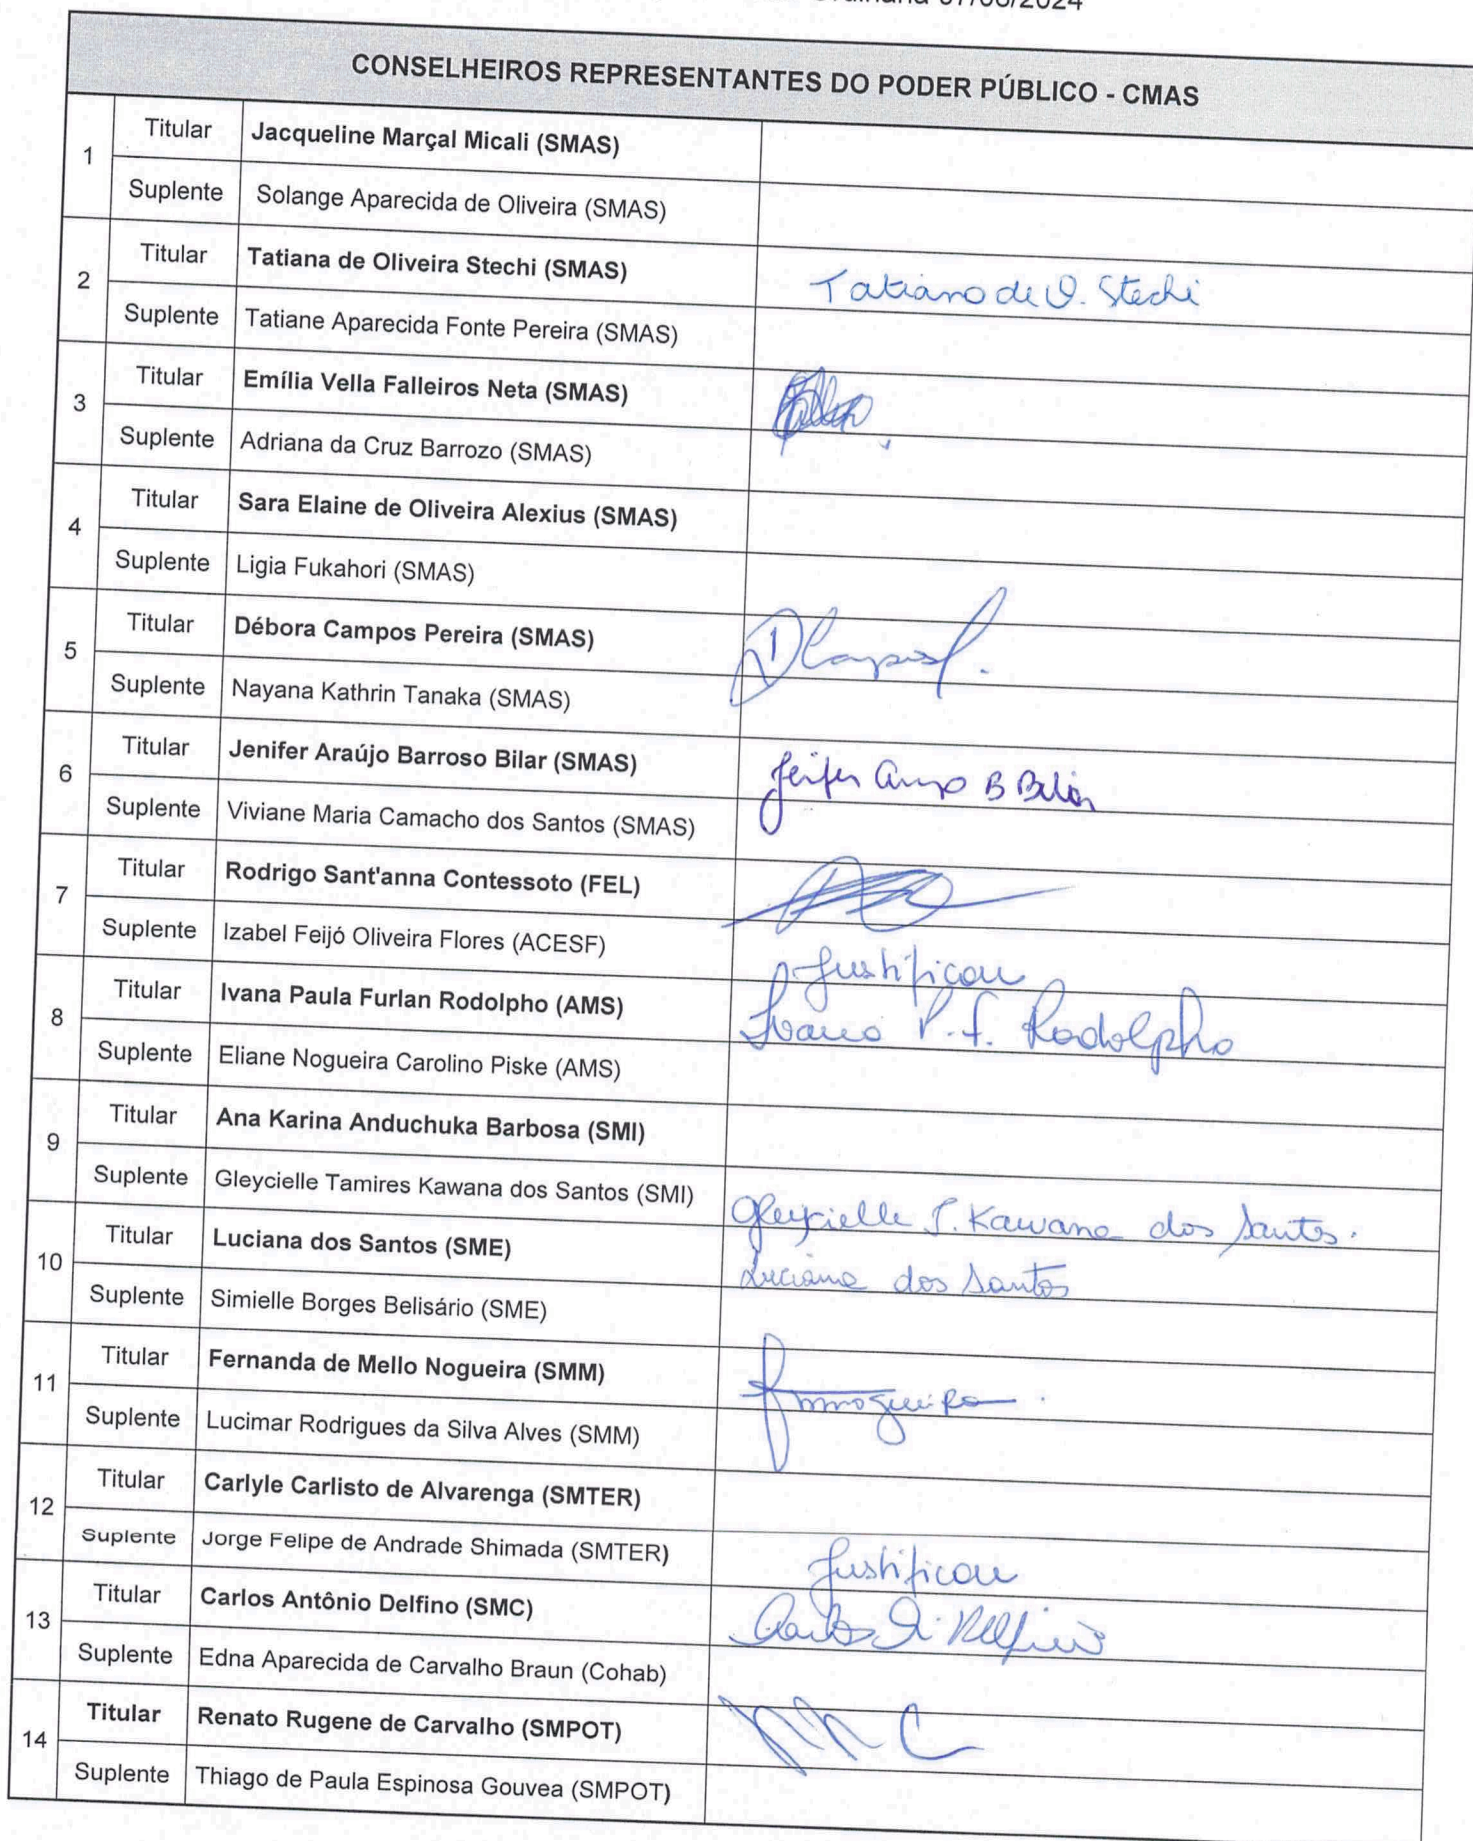 07/08/2024
CONSELHEIROS REPRESENTANTES DO PODER PÚBLICO - CMAS
1
Titular Jacqueline Marçal Micali (SMAS)
Suplente Solange Aparecida de Oliveira (SMAS)
2
Titular Tatiana de Oliveira Stechi (SMAS) Tatiana de O. Stechi
Suplente Tatiane Aparecida Fonte Pereira (SMAS)
3
Titular Emília Vella Falleiros Neta (SMAS)
Suplente Adriana da Cruz Barrozo (SMAS)
4
Titular Sara Elaine de Oliveira Alexius (SMAS)
Suplente Ligia Fukahori (SMAS)
5
Titular Débora Campos Pereira (SMAS) DCampos
Suplente Nayana Kathrin Tanaka (SMAS)
6
Titular Jenifer Araújo Barroso Bilar (SMAS) Jenifer Araujo B Bilar
Suplente Viviane Maria Camacho dos Santos (SMAS)
7
Titular Rodrigo Sant'anna Contessoto (FEL)
Suplente Izabel Feijó Oliveira Flores (ACESF) Justificou
8
Titular Ivana Paula Furlan Rodolpho (AMS) Ivana P. F. Rodolpho
Suplente Eliane Nogueira Carolino Piske (AMS)
9
Titular Ana Karina Anduchuka Barbosa (SMI)
Suplente Gleycielle Tamires Kawana dos Santos (SMI) Gleycielle T. Kawana dos Santos.
10
Titular Luciana dos Santos (SME) Luciana dos Santos
Suplente Simielle Borges Belisário (SME)
11
Titular Fernanda de Mello Nogueira (SMM) fmnogueira.
Suplente Lucimar Rodrigues da Silva Alves (SMM)
12
Titular Carlyle Carlisto de Alvarenga (SMTER)
Suplente Jorge Felipe de Andrade Shimada (SMTER) Justificou
13
Titular Carlos Antônio Delfino (SMC) Carlos A. Delfino
Suplente Edna Aparecida de Carvalho Braun (Cohab)
14
Titular Renato Rugene de Carvalho (SMPOT) RRC
Suplente Thiago de Paula Espinosa Gouvea (SMPOT)